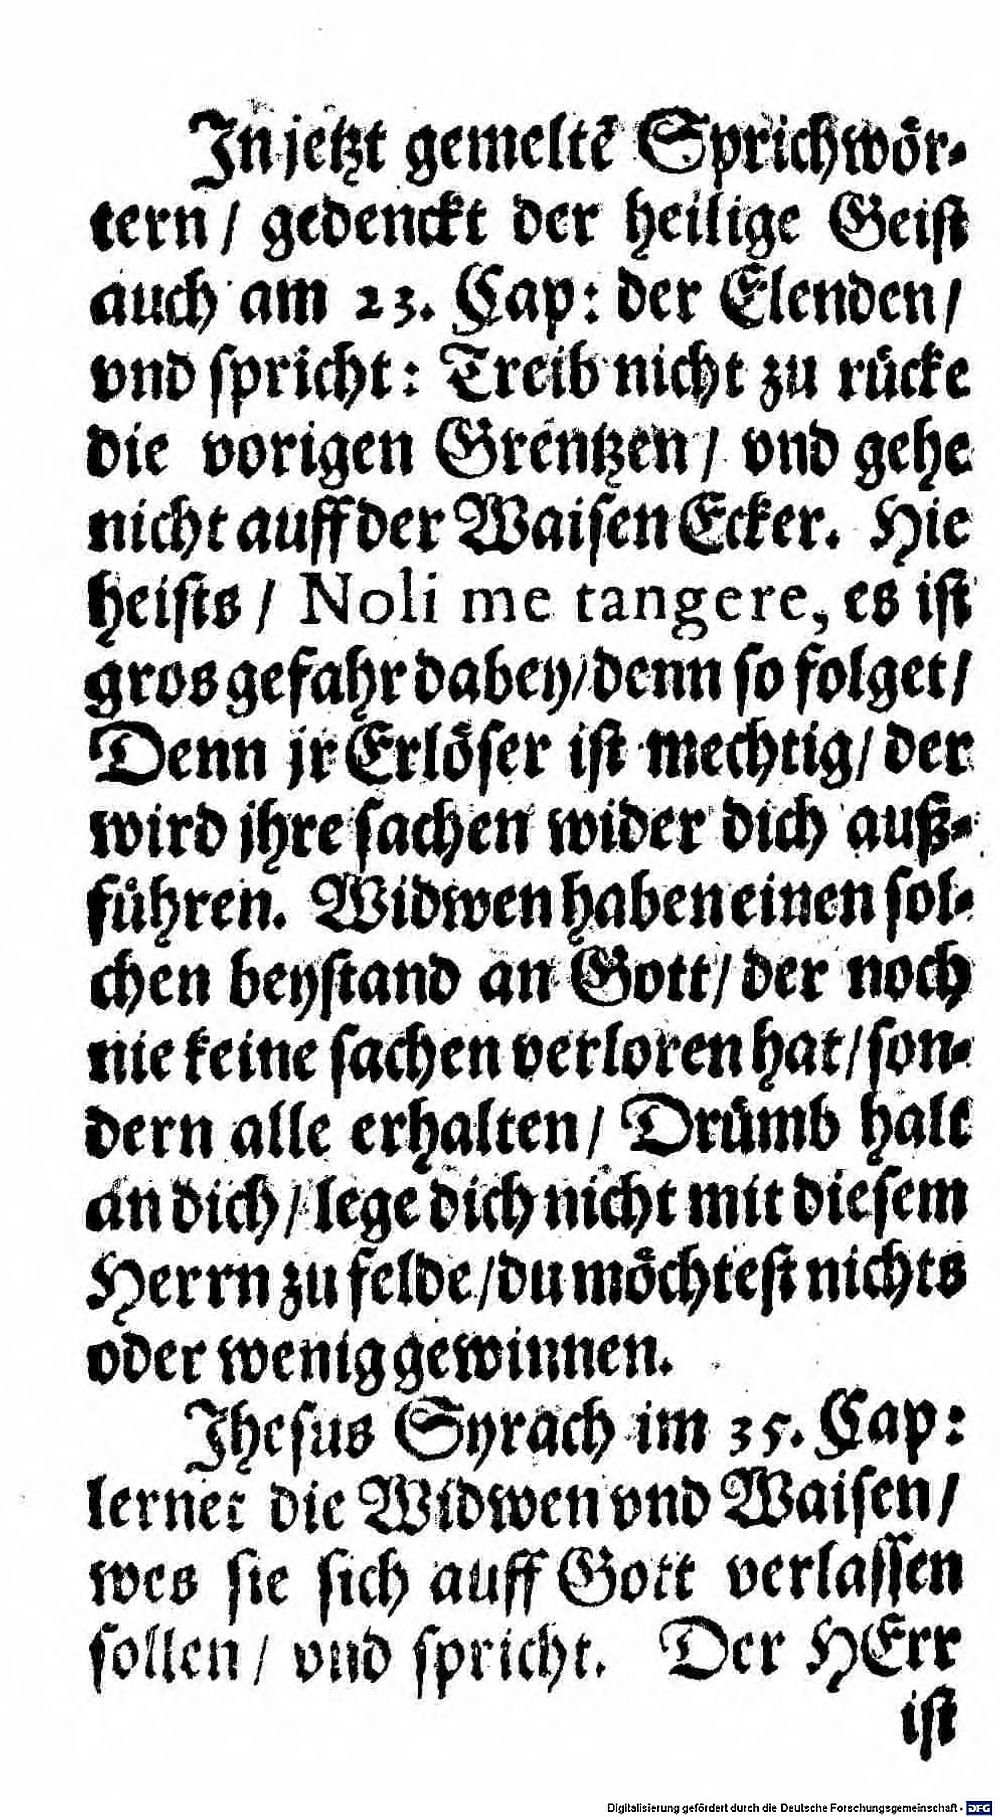 In jetzt gemeltē Sprichwoͤr-
tern / gedenckt der heilige Geist
auch am 23. Cap: der Elenden /
vnd spricht: Treib nicht zu ruͤcke
die vorigen Grentzen / vnd gehe
nicht auff der Waisen Ecker. Hie
heists / Noli me tangere, es ist
gros gefahr dabey / denn so folget /
Denn jr Erloͤser ist mechtig / der
wird jhre sachen wider dich auß-
fuͤhren. Widwen haben einen sol-
chen beystand an Gott / der noch
nie keine sachen verloren hat / son-
dern alle erhalten / Druͤmb halt
an dich / lege dich nicht mit diesem
Herrn zu felde / du moͤchtest nichts
oder wenig gewinnen.
Jhesus Syrach im 35. Cap:
lernet die Widwen vnd Waisen /
wes sie sich auff Gott verlassen
sollen / vnd spricht. Der HErr
ist
Digitalisierung gefördert durch die Deutsche Forschungsgemeinschaft - DFG